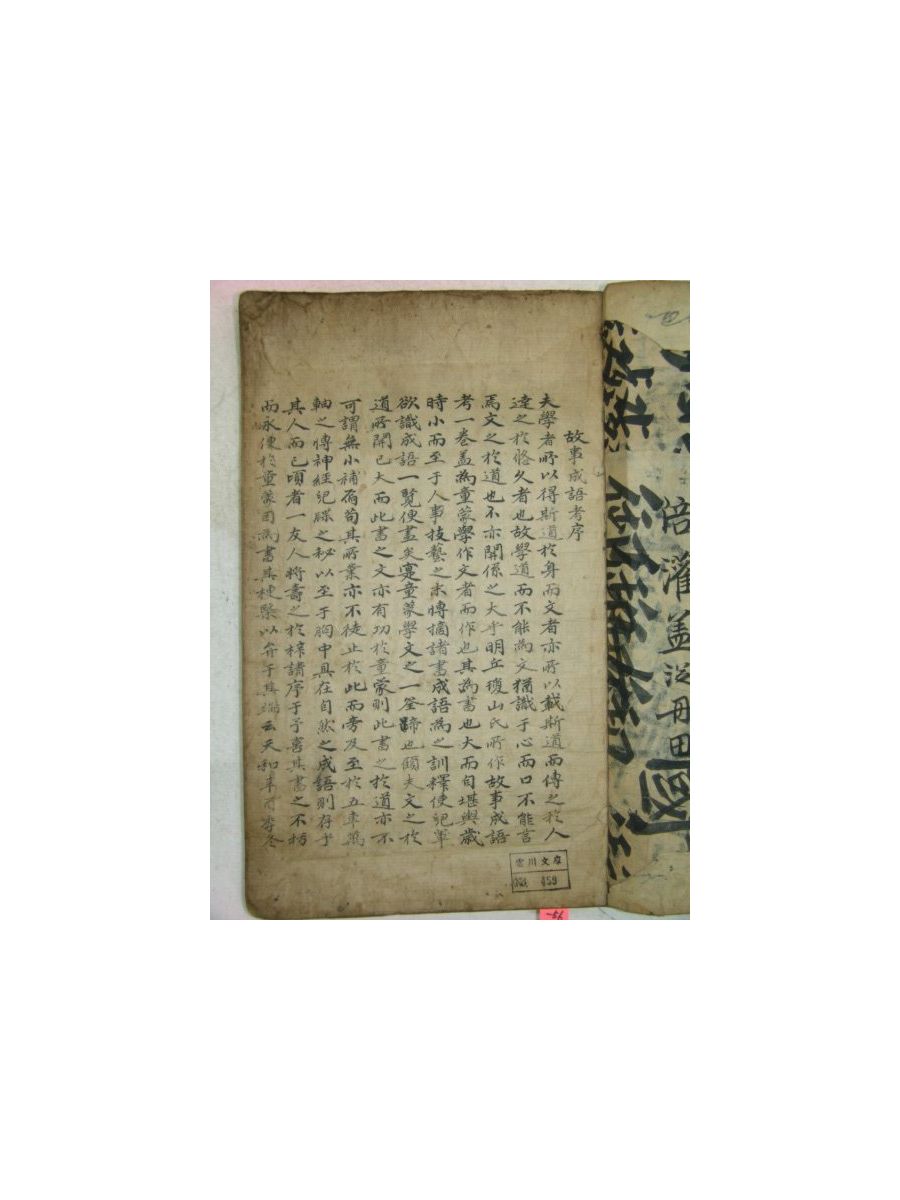 故事成語考序
夫學者所以得斯道於身而文者亦所以載斯道而傳之於人
達之於悠久者也故學道而不能為文猶識于心而口不能言
焉文之於道也不亦關係之大乎明丘瓊山氏所作故事成語
考一卷盖為童蒙學作文者而作也其為書也大而自堪輿歲
時小而至于人事技藝之末博摘諸書成語為之訓釋使記單
欲識成語一覧便盡矣寔童蒙學文之一筌蹄也顧夫文之於
道所関已大而此書之文亦有功於童蒙則此書之於道亦不
可謂無小補焉苟其所業亦不徒止於此而旁及至於五車萬
軸之傳神經紀牒之秘以至于胸中具在自然之成語則存乎
其人而已頃者一友人將壽之於梓請序于予喜其書之不朽
而永便於童蒙因為書其梗槩以弁于其端云天和
季冬
雲川文庫
459
培灌盖泥丹田
國